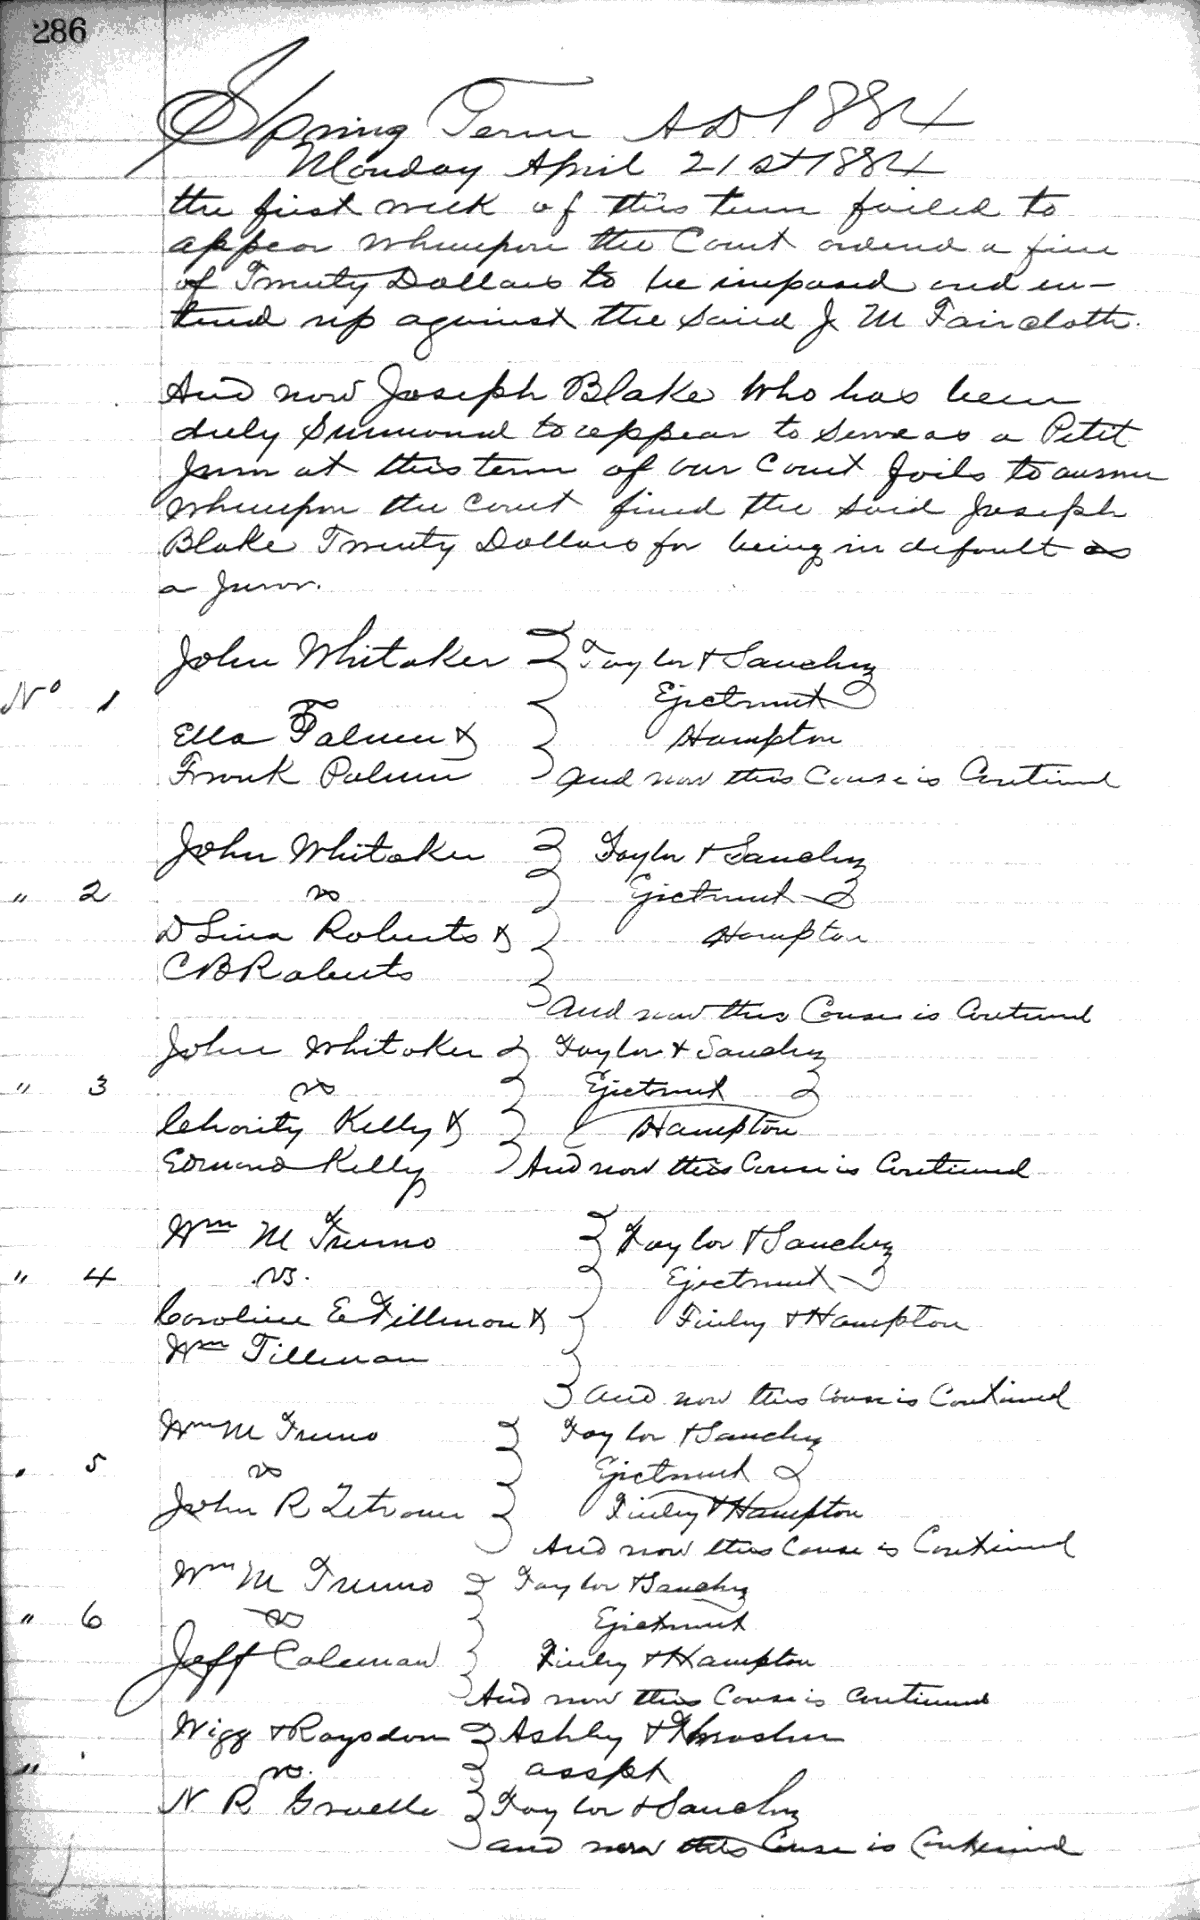 286
Spring Term A D 1884
Monday April 21st 1884
the first week of this term failed to
appear whereupon the Court ordered a fine
of Twenty Dollars to be imposed and en-
tered up against the said J M Faircloth.
And now Joseph Blake who has been
duly Summoned to appear to serve as a Petit
Juror at this term of our Court fails to answer
whereupon the Court fined the said Joseph
Blake Twenty Dollars for being in default as
a Juror.
John Whitaker Taylor & Sanchez
No 1 Ejectment
Ella Palmer & Hampton
Frank Palmer and now this Cause is Continued
John Whitaker Taylor & Sanchez
" 2 vs Ejectment
D Lina Roberts & Hampton
C B Roberts
and now this Cause is Continued
John Whitaker Taylor & Sanchez
" 3 vs Ejectment
Charity Kelly & Hampton
Edmond Kelly And now this Cause is Continued
Wm M Taylor & Sanchez
" 4 vs. Ejectment
Caroline E Tillman & Finley & Hampton
Wm Tillman
and now this Cause is Continued
Wm M Taylor & Sanchez
" 5 vs Ejectment
John R Zetrouer Finley & Hampton
And now this Cause is Continued
Wm M Taylor & Sanchez
" 6 vs Ejectment
Jeff Coleman Finley & Hampton
And now this Cause is continued
Wigg & Raysdon Ashley & Thrasher
" vs. asspt
N R Gruelle Taylor & Sanchez
and now this Cause is Continued